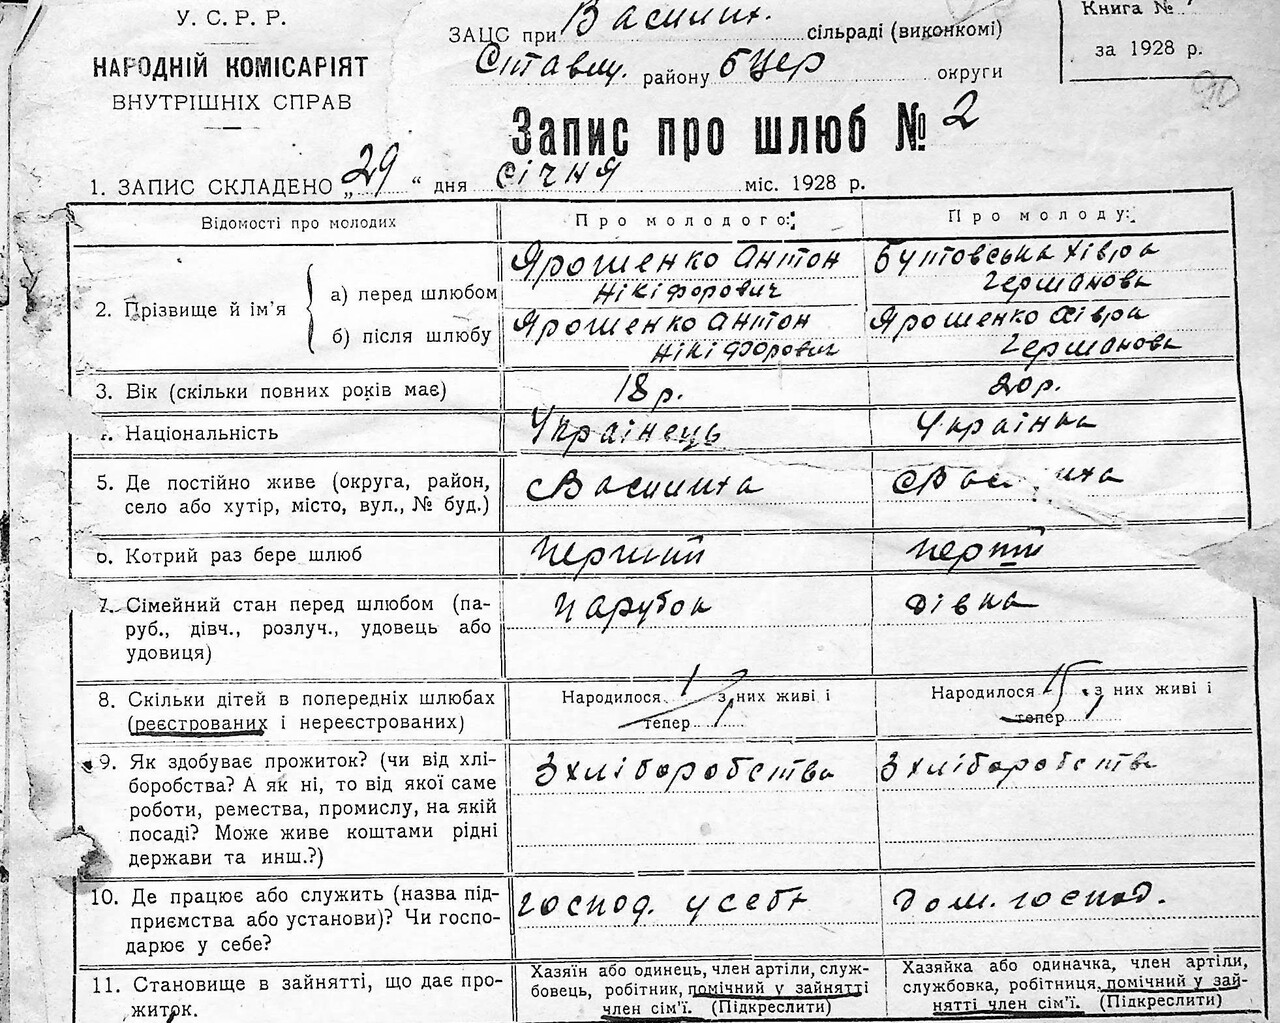 У. С. Р. Р.
НАРОДНІЙ КОМІСАРІЯТ
ВНУТРІШНІХ СПРАВ
ЗАЦС при Василих. сільраді (виконкомі)
Ставищ. району БЦер округи
Книга №
за 1928 р.
90
Запис про шлюб № 2
1. ЗАПИС СКЛАДЕНО „29“ дня січня міс. 1928 р.
Відомості про молодих
Про молодого:
Про молоду:
2. Прізвище й ім'я
а) перед шлюбом
Ярошенко Антон
Нікіфорович
Бутовська Хівра
Германова
б) після шлюбу
Ярошенко Антон
Нікіфорович
Ярошенко Хівра
Германова
3. Вік (скільки повних років має)
18 р.
20 р.
Національність
Українець
Українка
5. Де постійно живе (округа, район,
село або хутір, місто, вул., № буд.)
с Василиха
6. Котрий раз бере шлюб
перший
7. Сімейний стан перед шлюбом (па-
руб., дівч., розлуч., удовець або
удовиця)
парубок
дівка
8. Скільки дітей в попередніх шлюбах
(реєстрованих і нереєстрованих)
Народилося з них живі і
тепер
Народилося з них живі і
тепер
9. Як здобуває прожиток? (чи від хлі-
боробства? А як ні, то від якої саме
роботи, ремества, промислу, на якій
посаді? Може живе коштами рідні
держави та инш.?)
З хліборобства
З хліборобства
10. Де працює або служить (назва під-
приємства або установи)? Чи госпо-
дарює у себе?
господ. у себе
дом. господ.
11. Становище в зайнятті, що дає про-
житок.
Хазяїн або одинець, член артілі, служ-
бовець, робітник, помічний у зайнятті
член сім'ї. (Підкреслити)
Хазяйка або одиначка, член артіли,
службовка, робітниця, помічний у зай-
нятті член сім'ї. (Підкреслити)